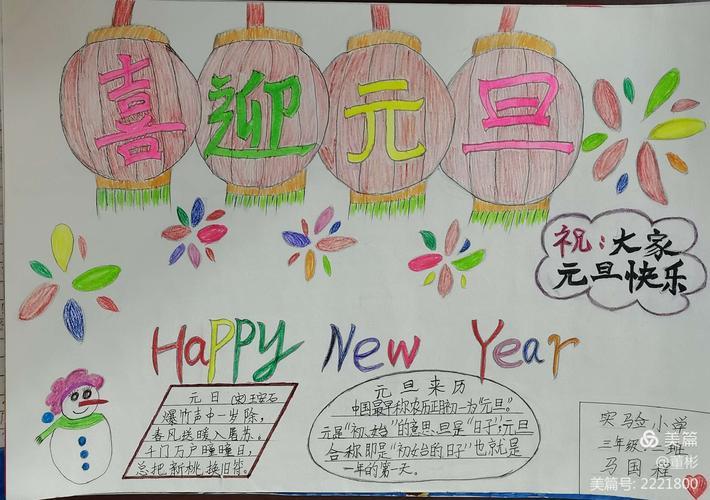 喜迎元旦
祝:大家
元旦快乐
Happy New Year
元日 (宋)王安石
爆竹声中一岁除,
春风送暖入屠苏。
千门万户曈曈日,
总把新桃换旧符。
元旦来历
中国最早称农历正月初一为“元旦”。
元是“初、始”的意思,旦是“日子”,元旦
合称即是“初始的日子”也就是
一年的第一天。
实验小学
三年级
二班
马国程
美篇
@董彬
美篇号: 2221800